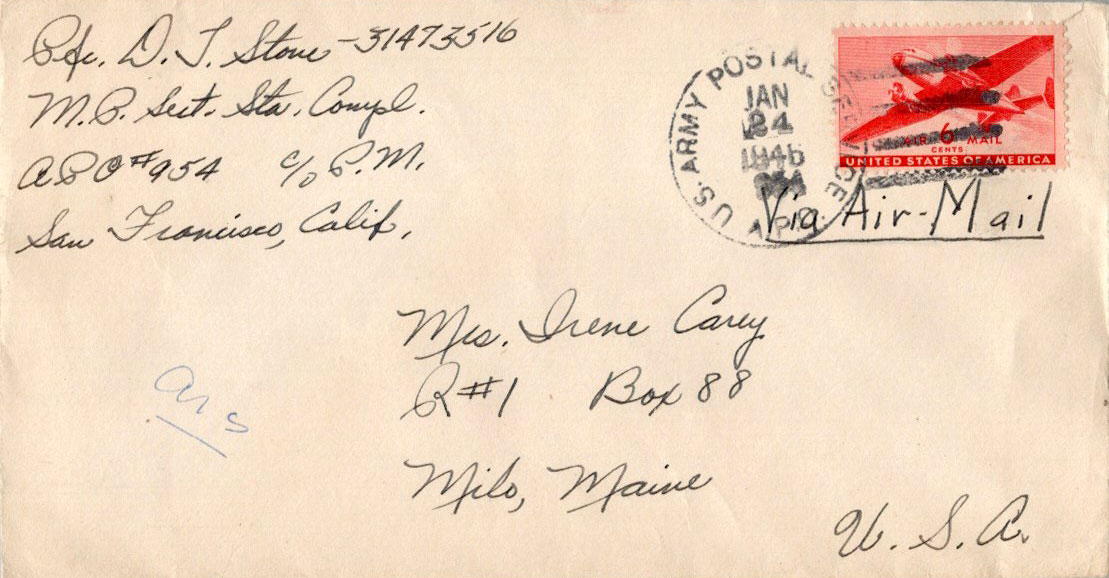 Pfc. D. T. Stone - 31473516
M.P. Sect. Sta. Compl.
APO #954 c/o P.M.
San Francisco, Calif.
U.S. ARMY POSTAL SERVICE
JAN
24
1946
A.P.O.
AIR 6 MAIL
CENTS
UNITED STATES OF AMERICA
Via Air-Mail
Mrs. Irene Carey
R#1 Box 88
Milo, Maine
U. S. A.
ans